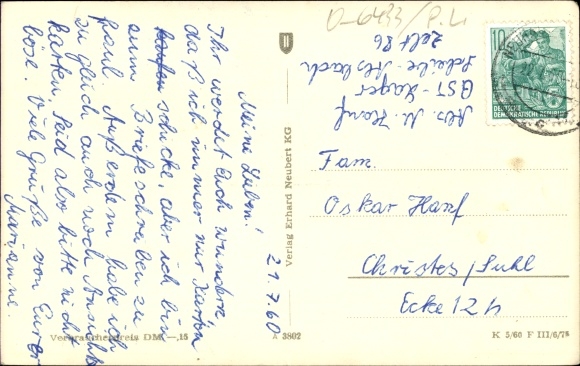 O-6433/P.4
Abs. M. Hanf
GST-Lager
Scheibe-Alsbach
Zelt 26
10
DEUTSCHE
DEMOKRATISCHE REPUBLIK
21.7.60
Meine Lieben!
Ihr werdet Euch wundern
daß ich immer nur Karten
schicke, aber ich bin
zum Briefeschreiben zu
faul. Außerdem habe ich
zu gleich auch noch Ansichts
karten. Seid also bitte nicht
böse. Viele Grüße von Eurer
Marianne.
Fam.
Oskar Hanf
Christes/Suhl
Ecke 124
Verlag Erhard Neubert KG
Verbraucherpreis DM —,15
A 3802
K 5/60 F III/6/78